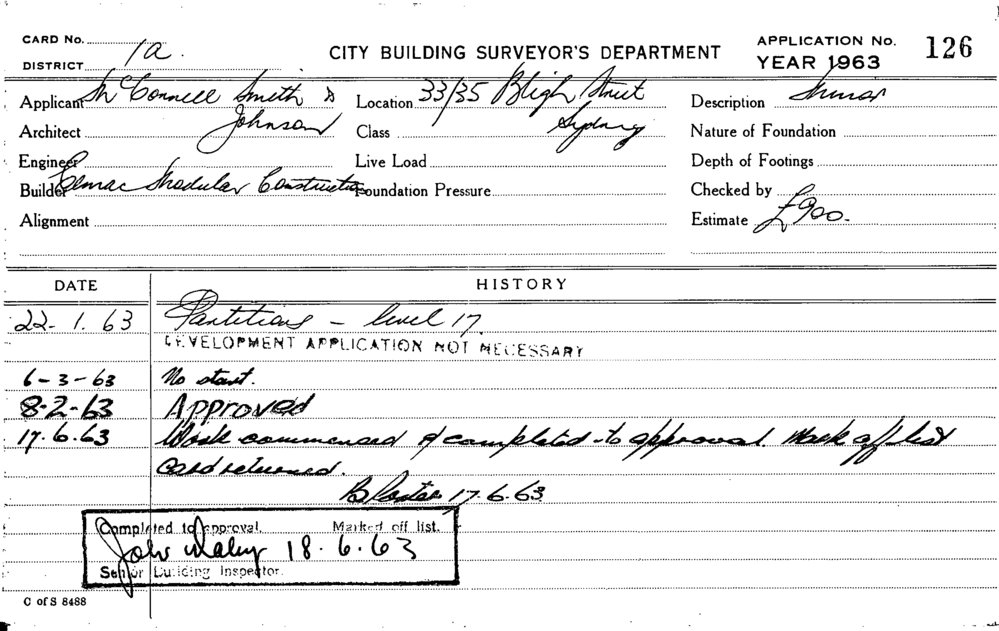 CARD No.
CITY BUILDING SURVEYOR'S DEPARTMENT
APPLICATION No. 126
DISTRICT 1a.
YEAR 1963
Applicant McConnell Smith & Johnson
Location 33/35 Bligh Street Sydney
Description Minor
Architect
Class
Nature of Foundation
Engineer
Live Load
Depth of Footings
Builder Cemac Modular Construction
Foundation Pressure
Checked by
Alignment
Estimate £900.
DATE HISTORY
22. 1. 63 Partitions - level 17.
DEVELOPMENT APPLICATION NOT NECESSARY
6-3-63 No start.
8-2-63 Approved
17.6.63 Work commenced & completed to approval. Mark off list
card returned.
17.6.63
Completed to approval. Marked off list.
John 18.6.63
Senior Building Inspector.
C of S 8488